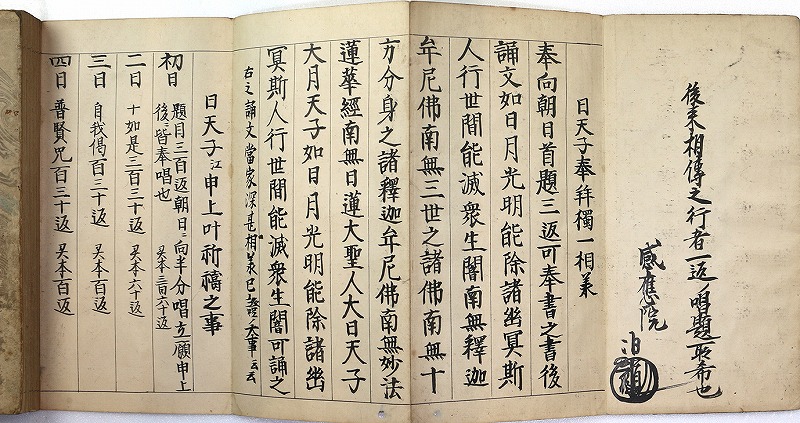 後来相傳之行者一返ノ唱題所希也
感應院
日天子奉拜獨一相義
奉向朝日首題三返可奉書之書後
誦文如日月光明能除諸幽冥斯
人行世間能滅衆生闇南無釋迦
牟尼佛南無三世之諸佛南無十
方分身之諸釋迦牟尼佛南無妙法
蓮華經南無日蓮大聖人大日天子
大月天子如日月光明能除諸幽
冥斯人行世間能滅衆生闇可誦之
右之誦文當家深甚相義已證大事云云
日天子江申上叶祈禱之事
初日 題目三百返朝日ニ向半分唱立願申上
後ニ皆奉唱也 异本三百六十返
二日 十如是三百三十返 异本六十返
三日 自我偈百三十返 异本百返
四日 普賢咒百三十返 异本百返